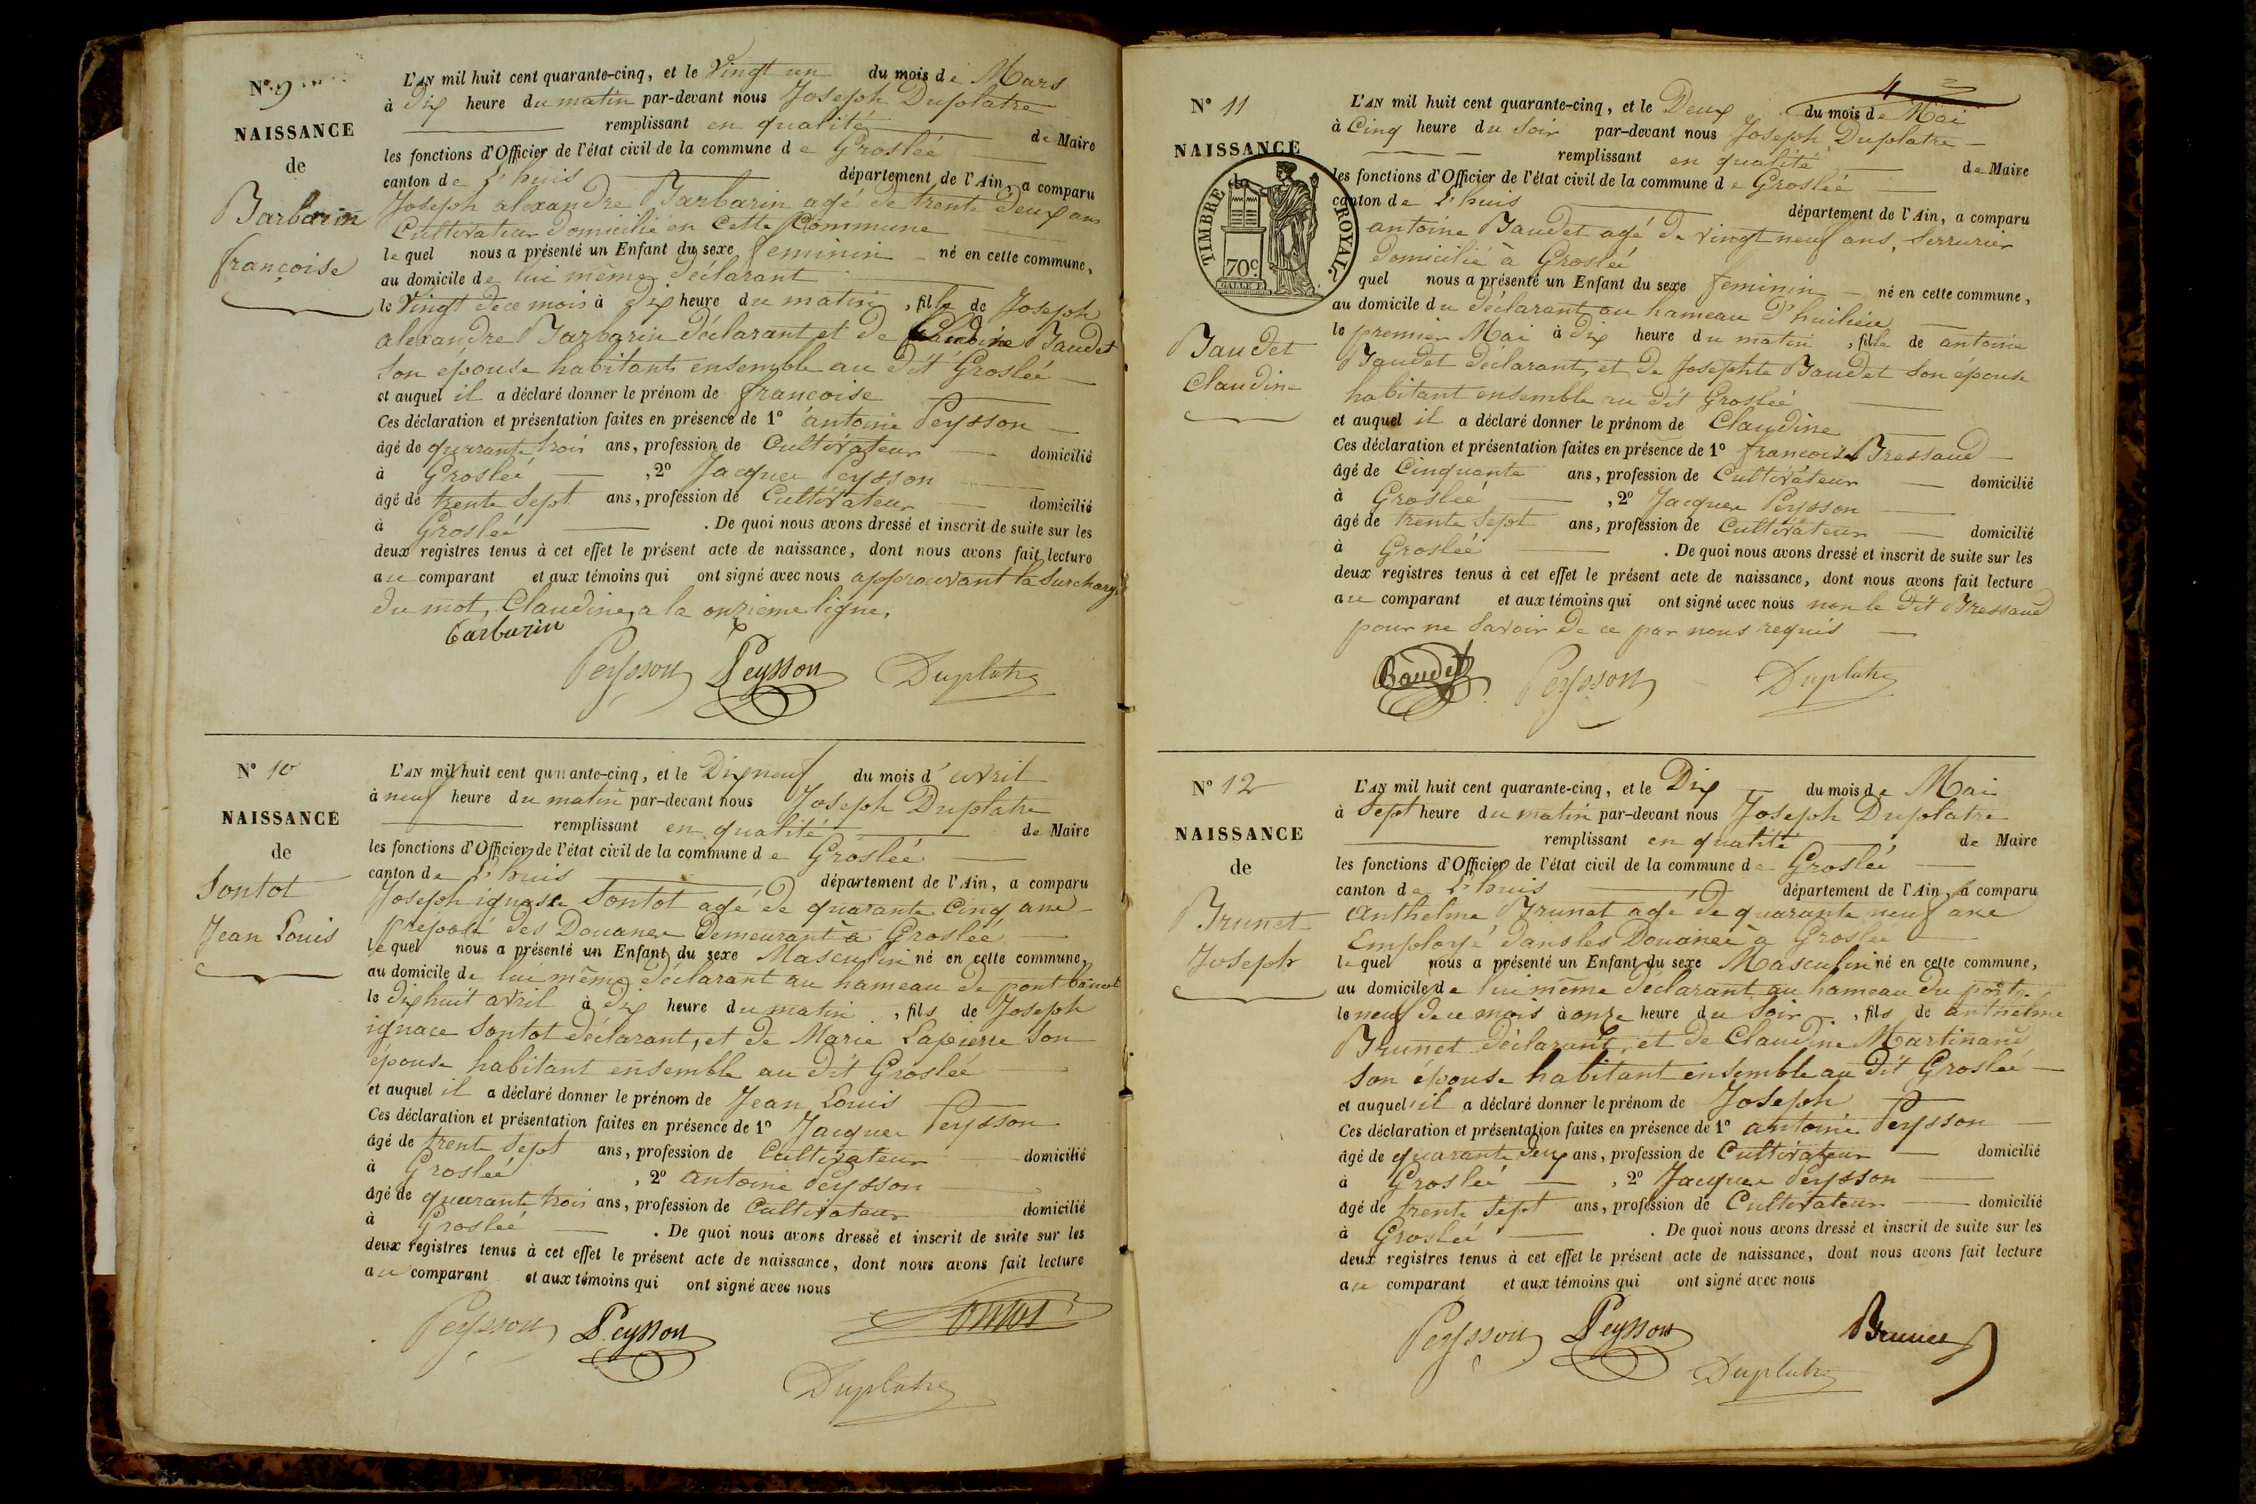 N° 9
NAISSANCE
de
Barbarin
françoise
L'AN mil huit cent quarante-cinq, et le Vingt un du mois de Mars
à dix heure du matin par-devant nous Joseph Duplatre
remplissant en qualité de Maire
les fonctions d'Officier de l'état civil de la commune de Groslée
canton de L'huis département de l'Ain, a comparu
Joseph alexandre Barbarin agé de trente deux ans
Cultivateur domicilié en cette Commune
lequel nous a présenté un Enfant du sexe feminin né en cette commune,
au domicile de lui même déclarant
le Vingt de ce mois à dix heure du matin, fille de Joseph
alexandre Barbarin déclarant et de Claudine Baudet
son épouse habitants ensemble au dit Groslée
et auquel il a déclaré donner le prénom de françoise
Ces déclaration et présentation faites en présence de 1° antoine Peysson
âgé de quarante trois ans, profession de Cultivateur domicilié
à Groslée, 2° Jacques Peysson
âgé de trente sept ans, profession de Cultivateur domicilié
à Groslée. De quoi nous avons dressé et inscrit de suite sur les
deux registres tenus à cet effet le présent acte de naissance, dont nous avons fait lecture
au comparant et aux témoins qui ont signé avec nous approuvant la surcharge
du mot, Claudine, a la onzieme ligne.
Barbarin
Peysson Peysson Duplatre
N° 10
NAISSANCE
de
Sontot
Jean Louis
L'AN mil huit cent quarante-cinq, et le Dix neuf du mois d'avril
à neuf heure du matin par-devant nous Joseph Duplatre
remplissant en qualité de Maire
les fonctions d'Officier de l'état civil de la commune de Groslée
canton de L'huis département de l'Ain, a comparu
Joseph ignace Sontot agé de quarante cinq ans
préposé des Douanes demeurant à Groslée
lequel nous a présenté un Enfant du sexe Masculin né en cette commune,
au domicile de lui même déclarant au hameau de pont bancot
le dix huit avril à dix heure du matin, fils de Joseph
ignace Sontot déclarant, et de Marie Lapierre son
épouse habitant ensemble au dit Groslée
et auquel il a déclaré donner le prénom de Jean Louis
Ces déclaration et présentation faites en présence de 1° Jacques Peysson
âgé de trente sept ans, profession de Cultivateur domicilié
à Groslée, 2° antoine Peysson
âgé de quarante trois ans, profession de Cultivateur domicilié
à Groslée. De quoi nous avons dressé et inscrit de suite sur les
deux registres tenus à cet effet le présent acte de naissance, dont nous avons fait lecture
au comparant et aux témoins qui ont signé avec nous
Peysson Peysson Sontot
Duplatre
4
N° 11
NAISSANCE
TIMBRE ROYAL.
70c
Baudet
Claudine
L'AN mil huit cent quarante-cinq, et le Deux du mois de Mai
à Cinq heure du soir par-devant nous Joseph Duplatre
remplissant en qualité de Maire
les fonctions d'Officier de l'état civil de la commune de Groslée
canton de L'huis département de l'Ain, a comparu
antoine Baudet agé de vingt neuf ans, serrurier
domicilié à Groslée
quel nous a présenté un Enfant du sexe feminin né en cette commune,
au domicile du déclarant au hameau d'huilieu
le premier Mai à dix heure du matin, fille de antoine
Baudet déclarant, et de Josephte Baudet son épouse
habitant ensemble au dit Groslée
et auquel il a déclaré donner le prénom de Claudine
Ces déclaration et présentation faites en présence de 1° françois Bressaud
âgé de Cinquante ans, profession de Cultivateur domicilié
à Groslée, 2° Jacques Peysson
âgé de trente sept ans, profession de Cultivateur domicilié
à Groslée. De quoi nous avons dressé et inscrit de suite sur les
deux registres tenus à cet effet le présent acte de naissance, dont nous avons fait lecture
au comparant et aux témoins qui ont signé avec nous non le dit Bressaud
pour ne savoir de ce par nous requis
Baudet Peysson Duplatre
N° 12
NAISSANCE
de
Brunet
Joseph
L'AN mil huit cent quarante-cinq, et le Dix du mois de Mai
à sept heure du matin par-devant nous Joseph Duplatre
remplissant en qualité de Maire
les fonctions d'Officier de l'état civil de la commune de Groslée
canton de L'huis département de l'Ain, a comparu
Anthelme Brunet agé de quarante neuf ans
Employé dans les Douanes à Groslée
lequel nous a présenté un Enfant du sexe Masculin né en cette commune,
au domicile de lui même déclarant au hameau du port
le neuf de ce mois à onze heure du soir, fils de anthelme
Brunet déclarant, et de Claudine Martinand
son épouse habitant ensemble au dit Groslée
et auquel il a déclaré donner le prénom de Joseph
Ces déclaration et présentation faites en présence de 1° antoine Peysson
âgé de quarante deux ans, profession de Cultivateur domicilié
à Groslée, 2° Jacques Peysson
âgé de trente sept ans, profession de Cultivateur domicilié
à Groslée. De quoi nous avons dressé et inscrit de suite sur les
deux registres tenus à cet effet le présent acte de naissance, dont nous avons fait lecture
au comparant et aux témoins qui ont signé avec nous
Peysson Peysson Brunet
Duplatre